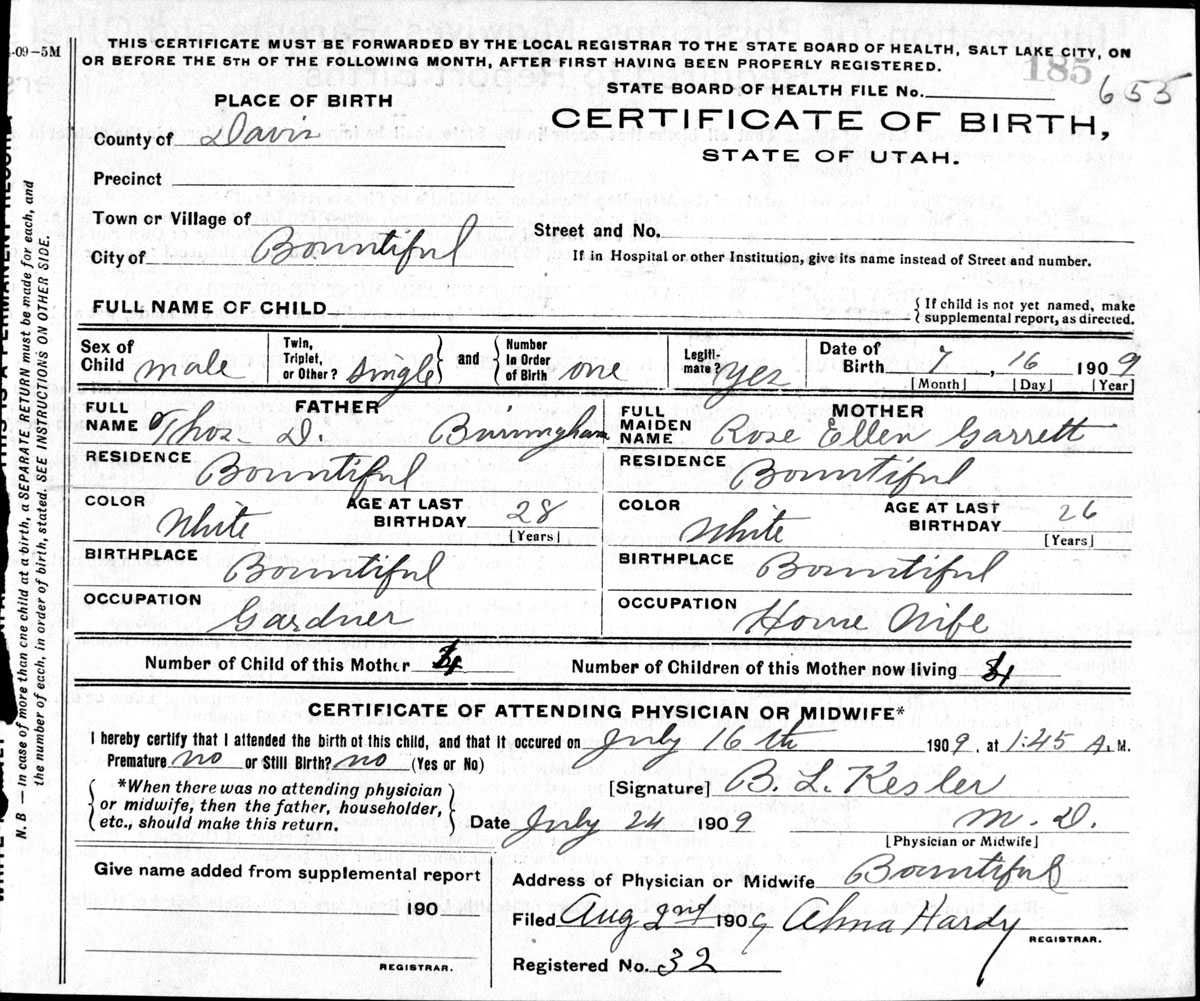 -09-5M
THIS CERTIFICATE MUST BE FORWARDED BY THE LOCAL REGISTRAR TO THE STATE BOARD OF HEALTH, SALT LAKE CITY, ON
OR BEFORE THE 5TH OF THE FOLLOWING MONTH, AFTER FIRST HAVING BEEN PROPERLY REGISTERED.
185
STATE BOARD OF HEALTH FILE No. 655
PLACE OF BIRTH
CERTIFICATE OF BIRTH,
County of Davis
STATE OF UTAH.
Precinct
Town or Village of
Street and No.
City of Bountiful
If in Hospital or other Institution, give its name instead of Street and number.
FULL NAME OF CHILD
If child is not yet named, make
supplemental report, as directed.
Sex of Child male
Twin, Triplet, or Other? single
and
Number in Order of Birth one
Legiti-mate? yes
Date of Birth 7, 16 1909
[Month] [Day] [Year]
FATHER
FULL NAME Thos. D. Burningham
MOTHER
FULL MAIDEN NAME Rose Ellen Garrett
RESIDENCE Bountiful
RESIDENCE Bountiful
COLOR White
AGE AT LAST BIRTHDAY 28
[Years]
COLOR White
AGE AT LAST BIRTHDAY 26
[Years]
BIRTHPLACE Bountiful
BIRTHPLACE Bountiful
OCCUPATION Gardner
OCCUPATION House Wife
Number of Child of this Mother 4
Number of Children of this Mother now living 4
CERTIFICATE OF ATTENDING PHYSICIAN OR MIDWIFE*
I hereby certify that I attended the birth of this child, and that it occured on July 16th 1909, at 1:45 A.M.
Premature no or Still Birth? no (Yes or No)
*When there was no attending physician
or midwife, then the father, householder,
etc., should make this return.
[Signature] B. L. Kesler
Date July 24 1909
M. D.
[Physician or Midwife]
Give name added from supplemental report
190
REGISTRAR.
Address of Physician or Midwife Bountiful
Filed Aug 2nd 1909 Alma Hardy
REGISTRAR.
Registered No. 32
N. B — In case of more than one child at a birth, a SEPARATE RETURN must be made for each, and
the number of each, in order of birth, stated. SEE INSTRUCTIONS ON OTHER SIDE.